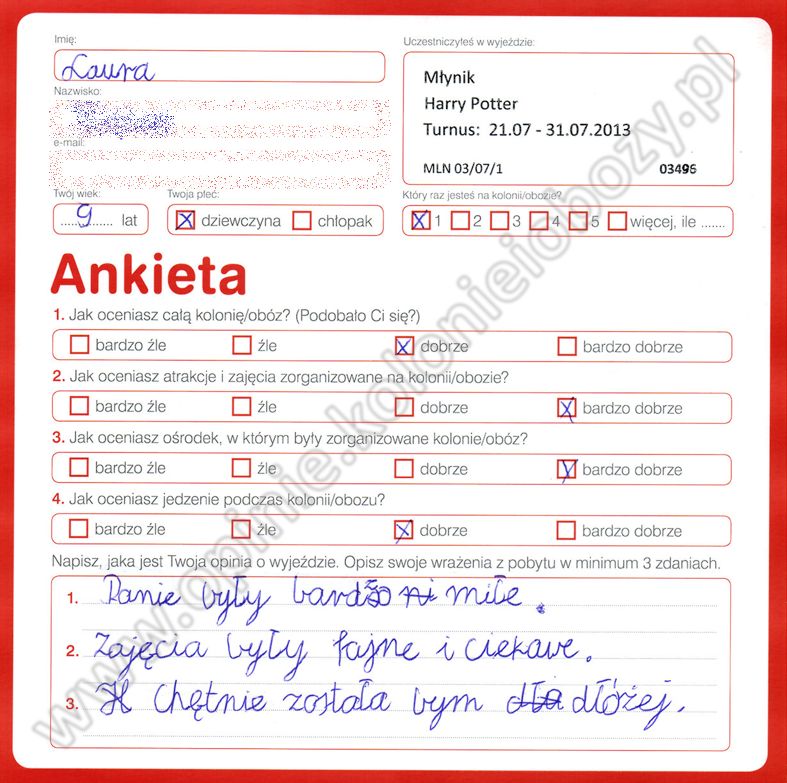 Imię:
Laura
Uczestniczyłeś w wyjeździe:
Młynik
Harry Potter
Turnus: 21.07 - 31.07.2013
MLN 03/07/1 03496
Nazwisko:
e-mail:
Twój wiek:
9 lat
Twoja płeć:
dziewczyna chłopak
Który raz jesteś na kolonii/obozie?
1 2 3 4 5 więcej, ile .......
Ankieta
1. Jak oceniasz całą kolonię/obóz? (Podobało Ci się?)
bardzo źle źle dobrze bardzo dobrze
2. Jak oceniasz atrakcje i zajęcia zorganizowane na kolonii/obozie?
bardzo źle źle dobrze bardzo dobrze
3. Jak oceniasz ośrodek, w którym były zorganizowane kolonie/obóz?
bardzo źle źle dobrze bardzo dobrze
4. Jak oceniasz jedzenie podczas kolonii/obozu?
bardzo źle źle dobrze bardzo dobrze
Napisz, jaka jest Twoja opinia o wyjeździe. Opisz swoje wrażenia z pobytu w minimum 3 zdaniach.
1. Panie były bardzo miłe.
2. Zajęcia były fajne i ciekawe.
3. Chętnie została bym dłóżej.
www.opinie.kolonieiobozy.pl